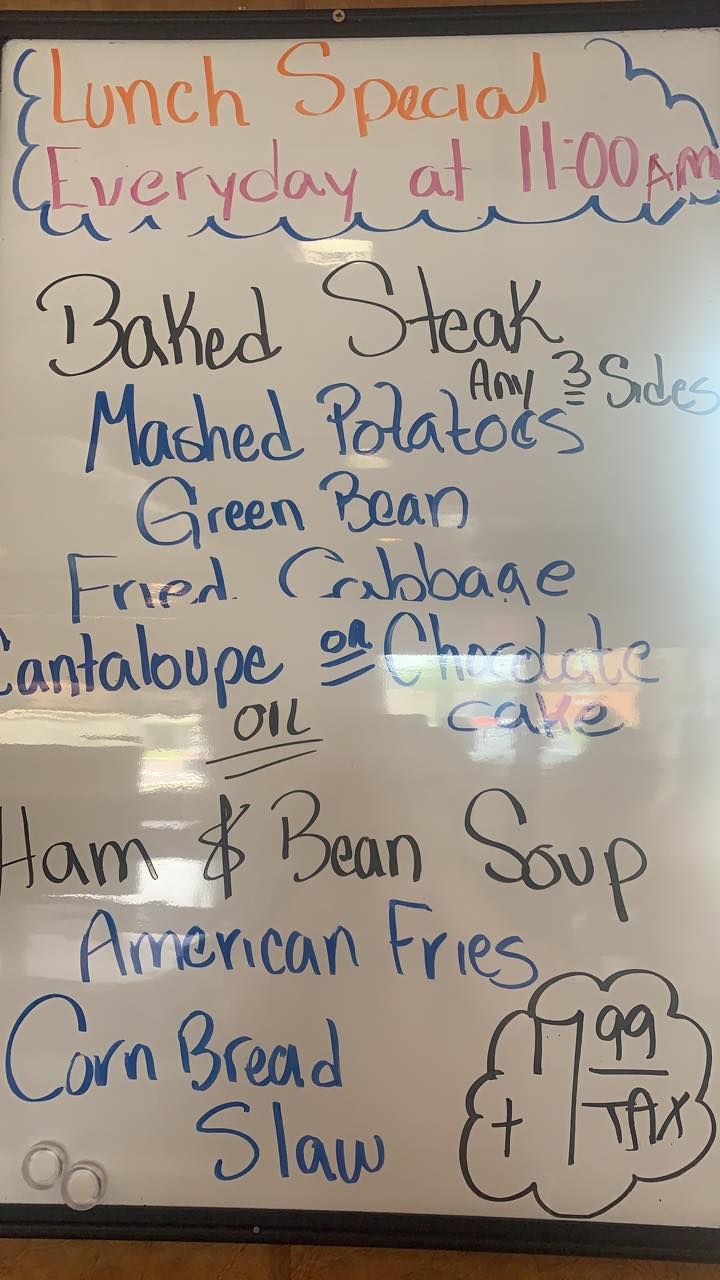 Lunch Special
Everyday at 11:00 AM
Baked Steak
Any 3 Sides
Mashed Potatoes
Green Bean
Fried Cabbage
Cantaloupe OR Chocolate
cake
OR
Ham & Bean Soup
American Fries
Corn Bread
Slaw
7 99
+ TAX